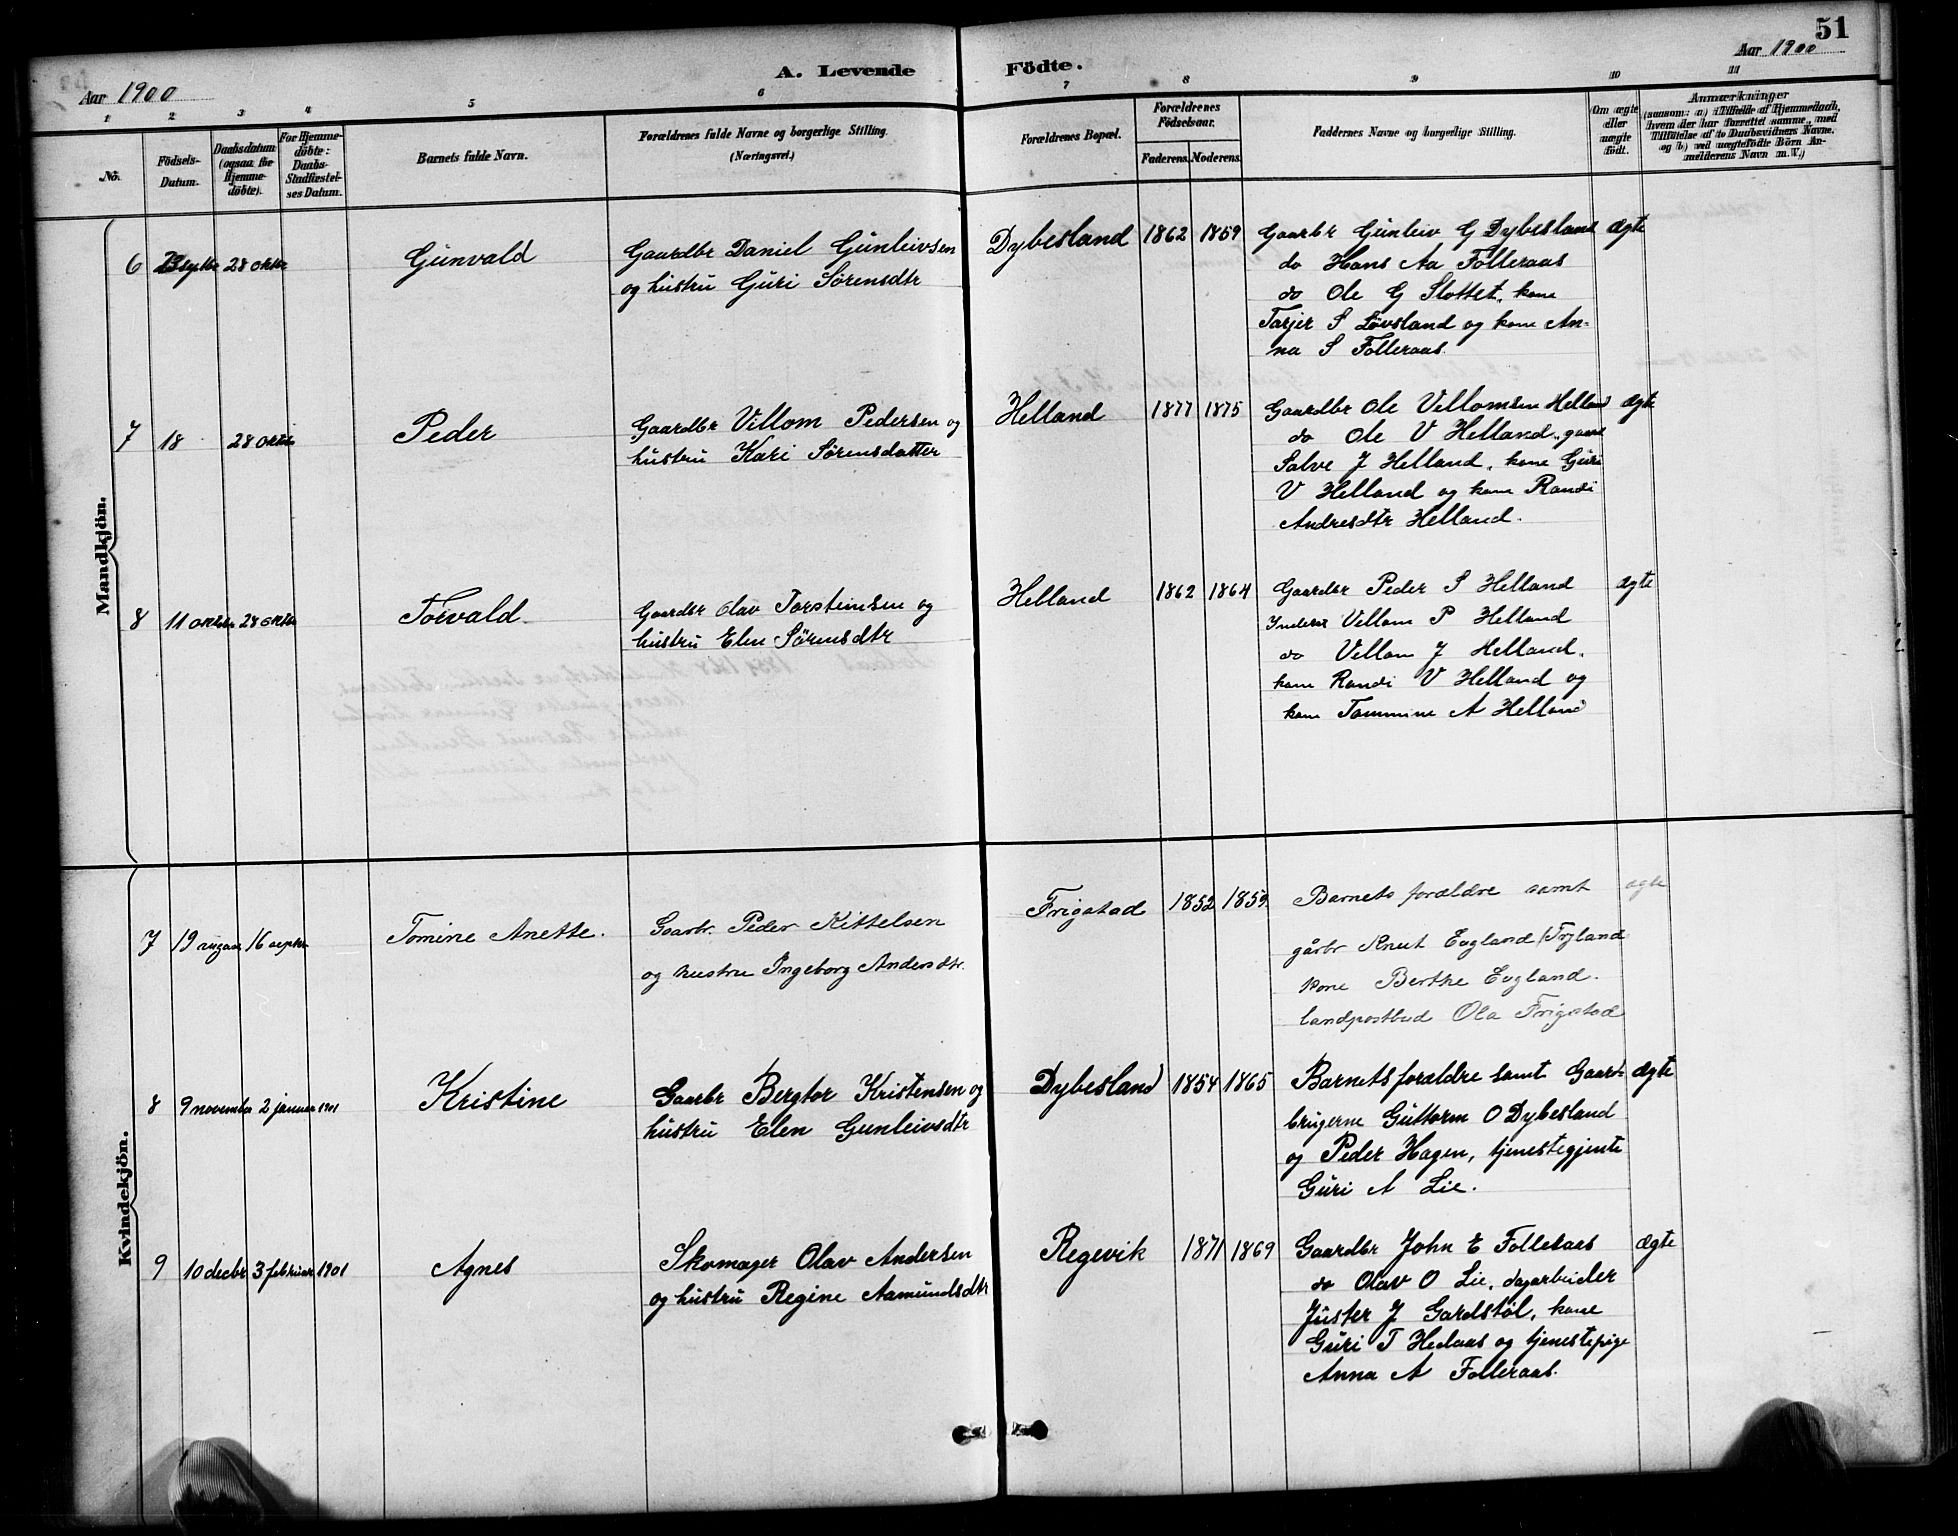 51
Aar 1900
A. Levende Födte.
Aar 1900
1 2 3 4 5 6 7 8 9 10 11
No.
Födsels-Datum.
Daabsdatum (ogsaa for Hjemmedöbte).
For Hjemmedöbte: Daabs-Stadfæstelses Datum.
Barnets fulde Navn.
Forældrenes fulde Navne og borgerlige Stilling.
(Næringsvei.)
Forældrenes Bopæl.
Forældrenes Födselsaar.
Faderens. Moderens.
Faddernes Navne og borgerlige Stilling.
Om ægte eller uægte födt.
Anmærkninger
(saasom: a) i Tilfælde af Hjemmedaab, hvem der har forrettet samme, med Tilföielse af to Daabsvidners Navne. og b) ved uægtefödte Börn Anmelderens Navn m. V.)
Mandkjön.
6 28 oktbr Gunvald
Gaardbr Daniel Gunleivsen
og hustru Guri Sørensdtr
Dybesland 1862 1859
Gaarbr Gunleiv G Dybesland ægte
do Hans Aa Folleraas
do Ole G Slottet, kone
Tarjer S Løvsland og kone An-
na S Folleraas.
7 18 28 oktbr Peder
Gaardbr Villom Pedersen og
hustru Kari Sørensdatter
Helland 1877 1875
Gaardbr Ole Vellomsen Helland ægte
do Ole V Helland,
Salve J Helland, kone Guri
V Helland og kone Randi
Andresdtr Helland.
8 11 oktbr 28 oktbr Torvald.
Gaardbr Olav Torsteinsen og
hustru Elen Sørensdtr
Helland 1862 1864
Gaardbr Peder S Helland ægte
Inderst Vellom P Helland
do Vellom J Helland,
kone Randi V Helland og
kone Tommine A Helland
Kvindekjön.
7 19 august 16 septbr Tomine Anette.
Gaarbr. Peder Kittelsen
og hustru Ingeborg Andersdtr.
Frigstad 1852 1859.
Barnets forældre samt ægte
gårbr Knut Evgland/Tryland
kone Berthe Evgland.
landpostbud Ola Frigstad
8 9 november 2 januar 1901 Kristine
Gaarbr Bergtor Kristensen og
hustru Elen Gunleivsdtr
Dybesland 1854 1865
Barnets forældre samt Gaard- ægte
brugerne Guttorm O Dybesland
og Peder Hagen, tjenestegjente
Guri A Lie.
9 10 decbr 3 februar 1901 Agnes
Skomager Olav Andersen
og hustru Regine Aamundsdtr
Regevik 1871 1869
Gaardbr John E Folleraas ægte
do Olav O Lie, dagarbeider
Juster J Gardstøl, kone
Guri T Hedaas og tjenestepige
Anna A Folleraas.